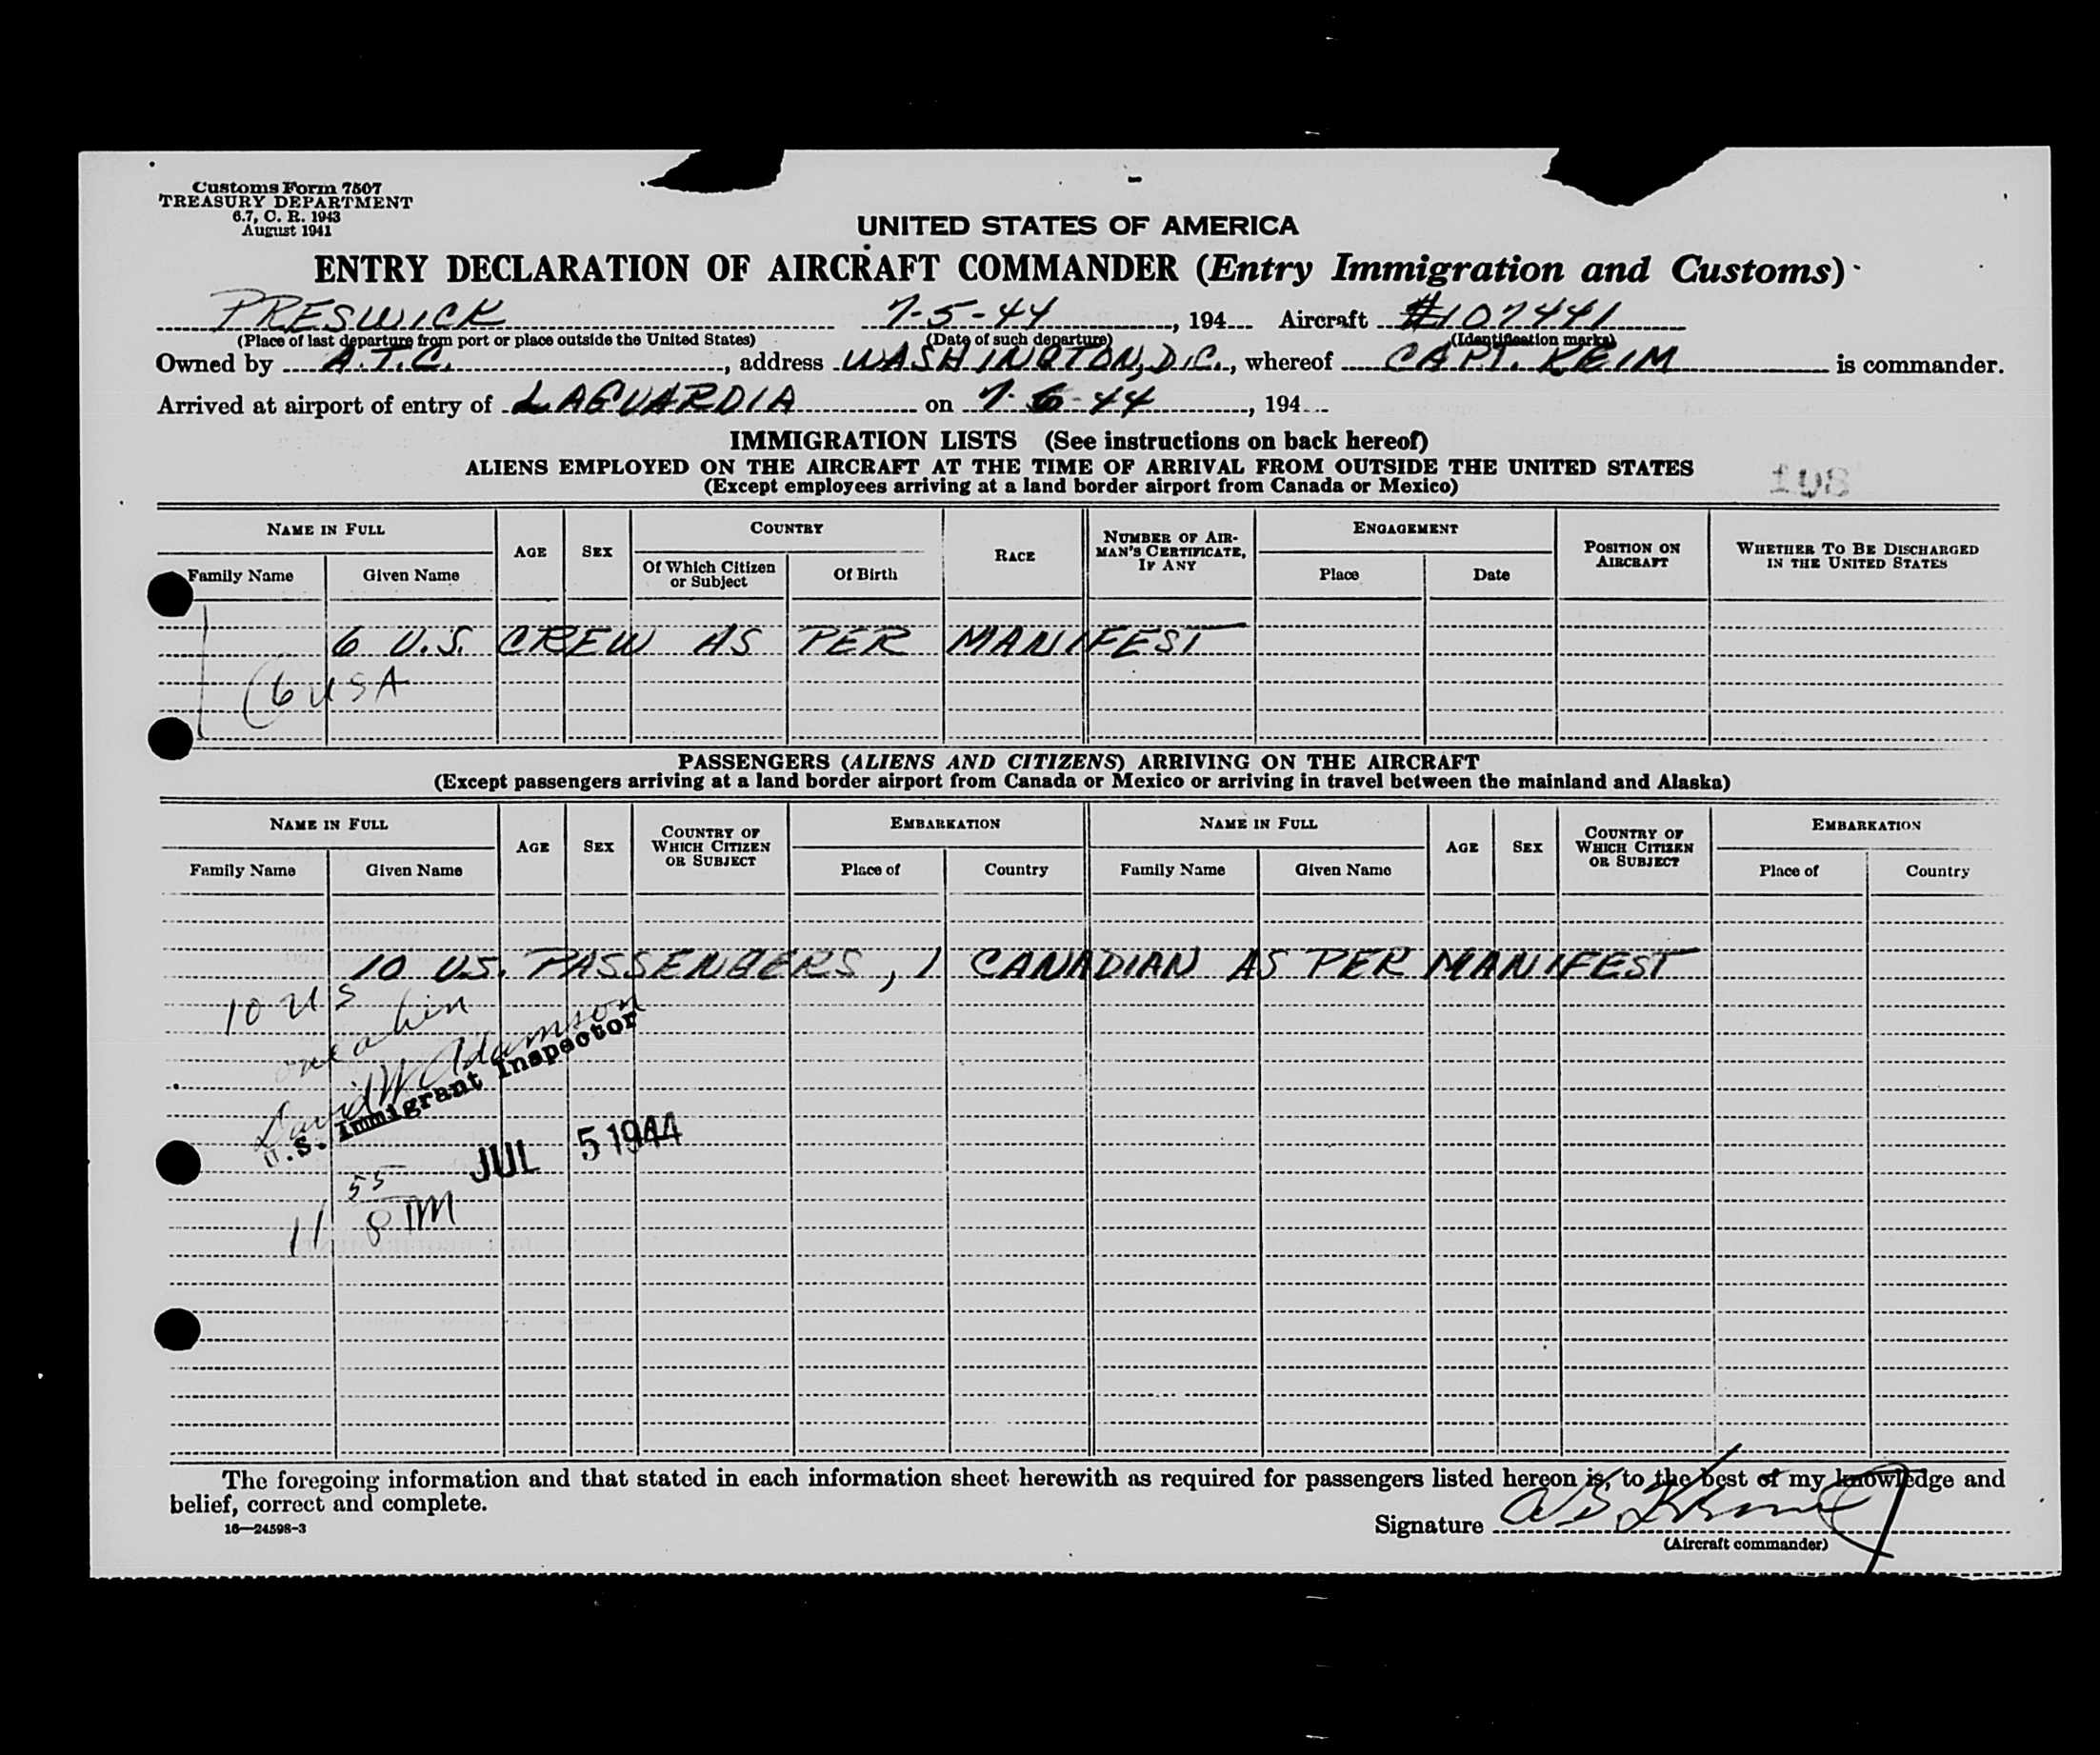 Customs Form 7507
TREASURY DEPARTMENT
6.7, C. R. 1943
August 1941
UNITED STATES OF AMERICA
ENTRY DECLARATION OF AIRCRAFT COMMANDER (Entry Immigration and Customs)
PRESWICK 7-5-44, 194 Aircraft #107441
(Place of last departure from port or place outside the United States) (Date of such departure) (Identification marks)
Owned by A.T.C., address WASHINGTON, D.C., whereof CAPT. KEIM is commander.
Arrived at airport of entry of LAGUARDIA on 7-6-44, 194
IMMIGRATION LISTS (See instructions on back hereof)
ALIENS EMPLOYED ON THE AIRCRAFT AT THE TIME OF ARRIVAL FROM OUTSIDE THE UNITED STATES
(Except employees arriving at a land border airport from Canada or Mexico)
108
NAME IN FULL AGE SEX COUNTRY RACE NUMBER OF AIR-
MAN'S CERTIFICATE,
IF ANY ENGAGEMENT POSITION ON
AIRCRAFT WHETHER TO BE DISCHARGED
IN THE UNITED STATES
Family Name Given Name Of Which Citizen
or Subject Of Birth Place Date
6 U.S. CREW AS PER MANIFEST
6 USA
PASSENGERS (ALIENS AND CITIZENS) ARRIVING ON THE AIRCRAFT
(Except passengers arriving at a land border airport from Canada or Mexico or arriving in travel between the mainland and Alaska)
NAME IN FULL AGE SEX COUNTRY OF
WHICH CITIZEN
OR SUBJECT EMBARKATION NAME IN FULL AGE SEX COUNTRY OF
WHICH CITIZEN
OR SUBJECT EMBARKATION
Family Name Given Name Place of Country Family Name Given Name Place of Country
10 US. PASSENGERS, 1 CANADIAN AS PER MANIFEST
10 US
one alien
David W Adamson
U.S. Immigrant Inspector
JUL 5 1944
11 55 PM
The foregoing information and that stated in each information sheet herewith as required for passengers listed hereon is, to the best of my knowledge and
belief, correct and complete.
16—24598-3
Signature
(Aircraft commander)